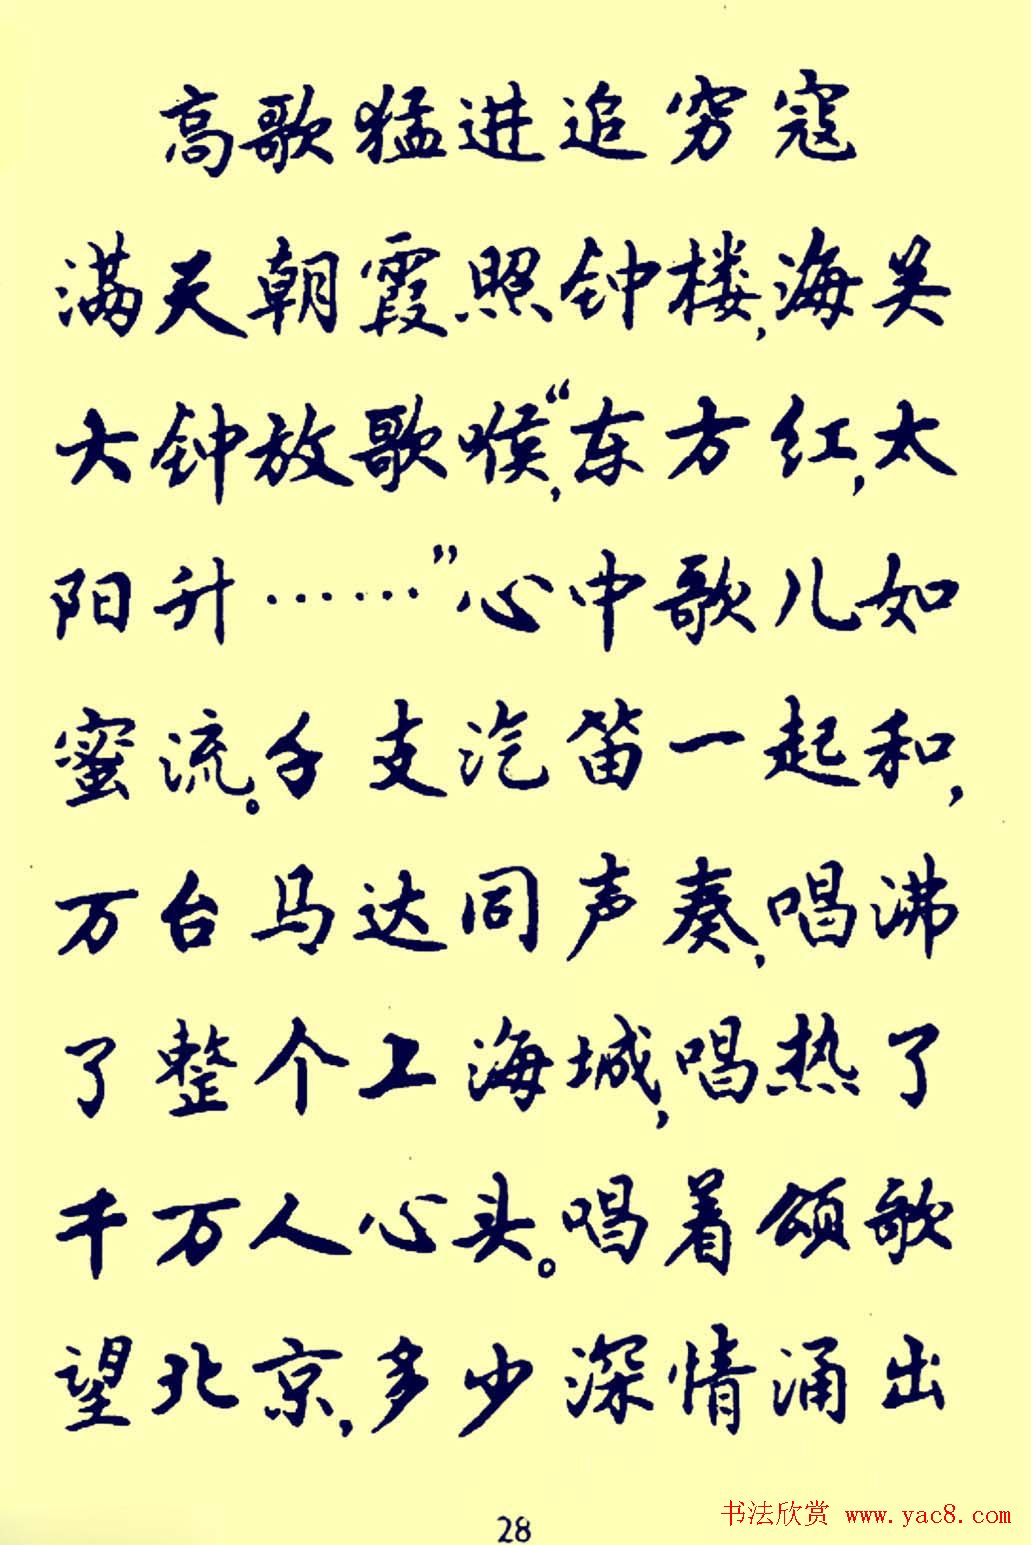 高歌猛进追穷寇
满天朝霞照钟楼,海关
大钟放歌喉,“东方红,太
阳升……”心中歌儿如
蜜流。千支汽笛一起和,
万台马达同声奏,唱沸
了整个上海城,唱热了
千万人心头。唱着颂歌
望北京,多少深情涌出
28
书法欣赏 www.yac8.com